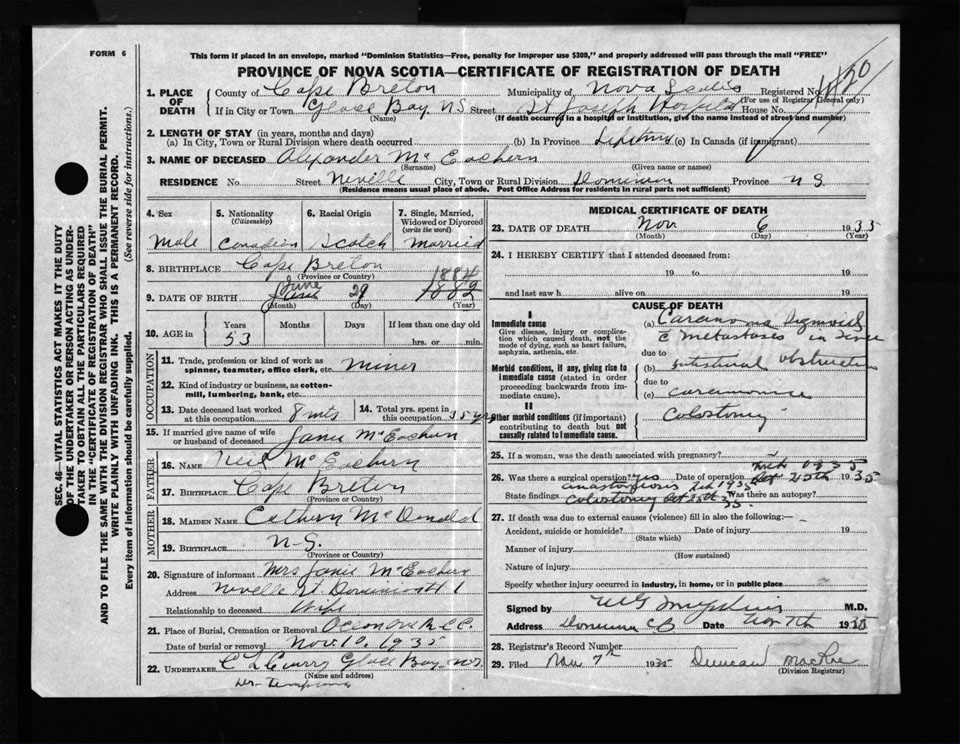 FORM 6
This form if placed in an envelope, marked "Dominion Statistics—Free, penalty for improper use $300," and properly addressed will pass through the mail "FREE"
PROVINCE OF NOVA SCOTIA—CERTIFICATE OF REGISTRATION OF DEATH
SEC. 46—VITAL STATISTICS ACT MAKES IT THE DUTY
OF THE UNDERTAKER OR PERSON ACTING AS UNDER-
TAKER TO OBTAIN ALL THE PARTICULARS REQUIRED
IN THE "CERTIFICATE OF REGISTRATION OF DEATH"
AND TO FILE THE SAME WITH THE DIVISION REGISTRAR WHO SHALL ISSUE THE BURIAL PERMIT.
WRITE PLAINLY WITH UNFADING INK. THIS IS A PERMANENT RECORD.
Every item of information should be carefully supplied. (See reverse side for instructions.)
1. PLACE OF DEATH County of Cape Breton Municipality of Nova Scotia Registered No.
(For use of Registrar General only)
If in City or Town Glace Bay NS Street St Joseph Hospital House No.
(Name) (If death occurred in a hospital or institution, give the name instead of street and number)
2. LENGTH OF STAY (in years, months and days)
(a) In City, Town or Rural Division where death occurred (b) In Province Lifetime (c) In Canada (if immigrant)
3. NAME OF DECEASED Alexander McEachern
(Surname) (Given name or names)
RESIDENCE No. Street Neville City, Town or Rural Division Dominion Province NS
(Residence means usual place of abode. Post Office Address for residents in rural parts not sufficient)
4. Sex 5. Nationality (Citizenship) 6. Racial Origin 7. Single, Married, Widowed or Divorced (write the word)
Male Canadian Scotch Married
8. BIRTHPLACE Cape Breton
(Province or Country)
1884
9. DATE OF BIRTH June 29 1882
(Month) (Day) (Year)
10. AGE in Years Months Days If less than one day old
53 hrs. or min.
OCCUPATION
11. Trade, profession or kind of work as spinner, teamster, office clerk, etc. miner
12. Kind of industry or business, as cotton-mill, lumbering, bank, etc.
13. Date deceased last worked at this occupation 8 mts 14. Total yrs. spent in this occupation 35 yrs
15. If married give name of wife or husband of deceased Janie McEachern
FATHER
16. NAME Neil McEachern
17. BIRTHPLACE Cape Breton
(Province or Country)
MOTHER
18. MAIDEN NAME Cathern McDonald
19. BIRTHPLACE N.S.
(Province or Country)
20. Signature of informant Mrs Janie McEachern
Address Neville St Dominion
Relationship to deceased Wife
21. Place of Burial, Cremation or Removal
Date of burial or removal Nov 10 1935
22. UNDERTAKER C L Curry Glace Bay NS
(Name and address)
MEDICAL CERTIFICATE OF DEATH
23. DATE OF DEATH Nov 6 1935
(Month) (Day) (Year)
24. I HEREBY CERTIFY that I attended deceased from:
19 to 19
and last saw h alive on 19
CAUSE OF DEATH
I
Immediate cause
Give disease, injury or complication which caused death, not the mode of dying, such as heart failure, asphyxia, asthenia, etc.
(a) Carcinoma Sigmoid
c metastases in liver
due to
Morbid conditions, if any, giving rise to immediate cause (stated in order proceeding backwards from immediate cause).
(b) intestinal obstruction
due to
(c) carcinoma
II
Other morbid conditions (if important) contributing to death but not causally related to immediate cause.
Colostomy
25. If a woman, was the death associated with pregnancy?
26. Was there a surgical operation? yes Date of operation Oct 25th 1935
State findings anastomosis Feb 1935 Was there an autopsy?
colostomy Oct 25th 35
27. If death was due to external causes (violence) fill in also the following:—
Accident, suicide or homicide? Date of injury 19
(State which)
Manner of injury
(How sustained)
Nature of injury
Specify whether injury occurred in industry, in home, or in public place
Signed by M.D.
Address Dominion CB Date Nov 7th 1935
28. Registrar's Record Number
29. Filed Nov 7th 1935 Duncan MacRae
(Division Registrar)